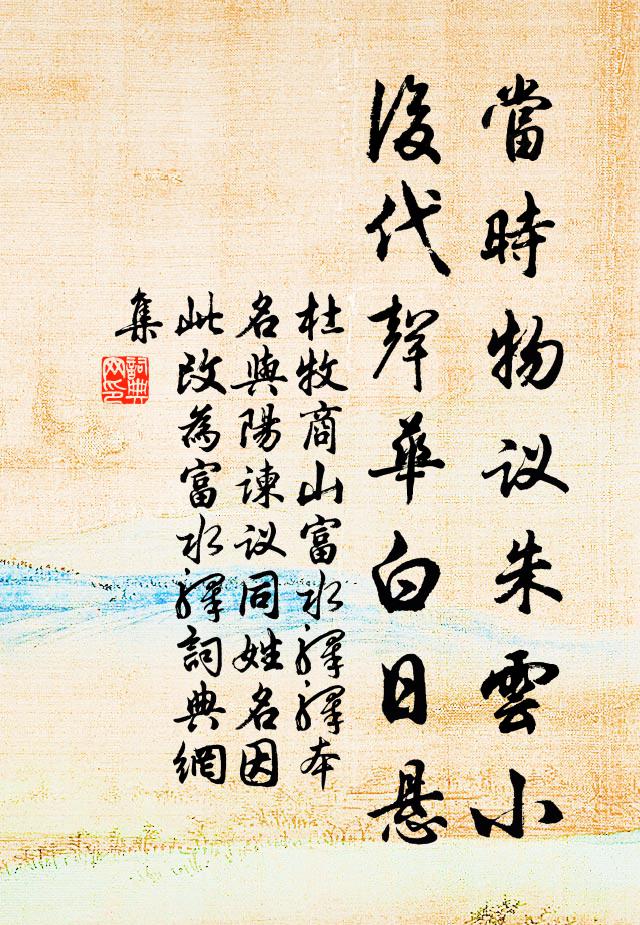 當時物议朱雲小
後代聲華白日悬
杜牧商山富水驛驛本
名與陽諫议同姓名因
此改為富水驛詞典網
集
詞典網印